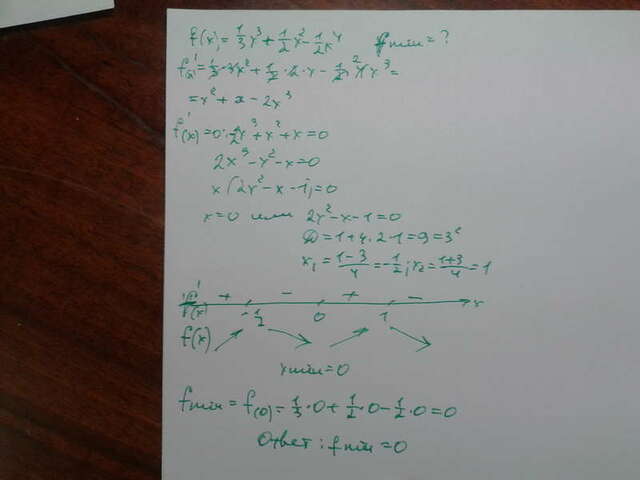 f(x) = 1/3 x³ + 1/2 x² - 1/2 x⁴ fmin = ?
f'(x) = 1/3 · 3x² + 1/2 · 2 · x - 1/2 · 4x³ =
= x² + x - 2x³
f'(x) = 0: -2x³ + x² + x = 0
2x³ - x² - x = 0
x(2x² - x - 1) = 0
x = 0 или 2x² - x - 1 = 0
D = 1 + 4 · 2 · 1 = 9 = 3²
x₁ = (1-3)/4 = -1/2; x₂ = (1+3)/4 = 1
f'(x) + - + - x
-1/2 0 1
f(x)
xmin = 0
fmin = f(0) = 1/3 · 0 + 1/2 · 0 - 1/2 · 0 = 0
Ответ: fmin = 0